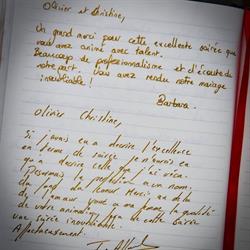 Olivier et Christine,
Un grand merci pour cette excellente soirée que
vous avez animé avec talent.
Beaucoup de professionnalisme et d'écoute de
notre part. Vous avez rendu notre mariage
inoubliable!
Barbara.
Olivier Christine,
Si j'avais eu à décrire l'excellence
en terme de soirée je n'aurais eu
qu'à décrire celle
Désormais la a un nom.
du fond du coeur Merci, au delà
de la qualité
de votre animation cette soirée
une soirée inoubliable.
Affectueusement.